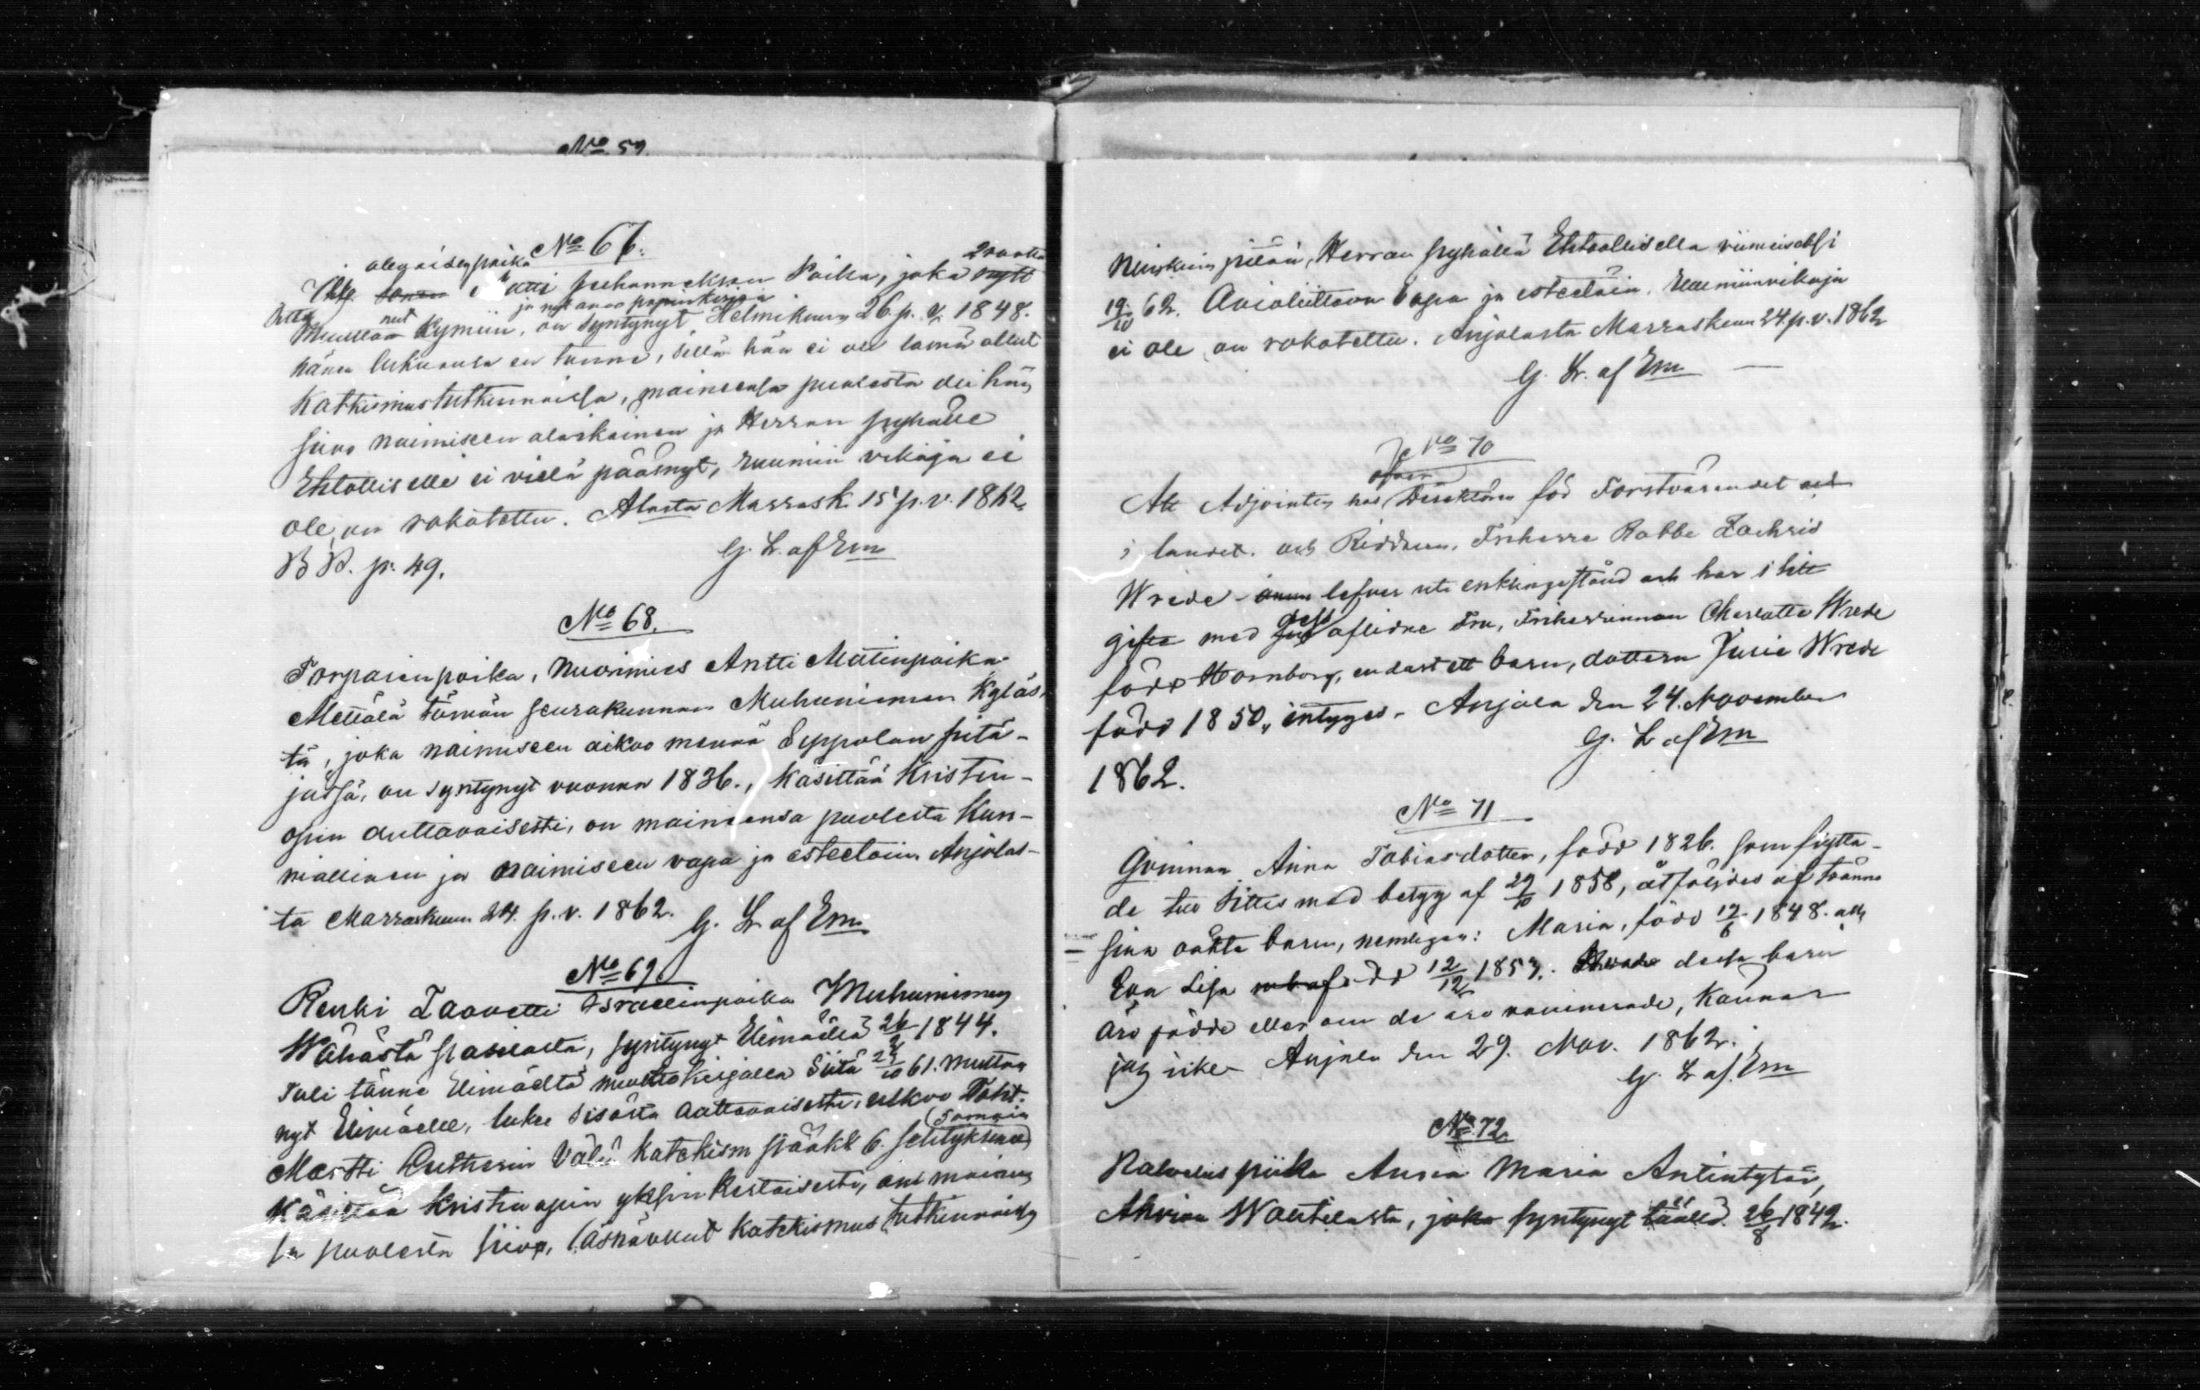 No 59.
No 66.
Matti Juhanneksen Poika, joka
Kymiin, on syntynyt Helmikuun 26 p. v. 1848.
hänen lukuansa en tunne, sillä hän ei ole tämä ollut
Katkismustutkinnoissa, maineensa puolesta on hän
siivo naimiseen alaikäinen ja Herran pyhälle
Ehtolliselle ei vielä päässyt, ruumiin vikoja ei
ole, on rokotettu. Marrask. 15 p. v. 1862.
B B. p. 49.
G. L. af Em
No 68.
Torparinpoika, nuorimies Antti Matinpoika
Mettälä tämän seurakunnan Muhuniemen Kyläs-
tä, joka naimiseen aikoo mennä Sippolan pitä-
jässä, on syntynyt vuonna 1836., Käsittää Kristin-
opin auttavaisesti, on maineensa puolesta Kun-
niallinen ja naimiseen vapa ja esteetöin. Anjalas-
ta Marraskuun 24. p. v. 1862.
G. L af Em
No 69.
Renki Taavetti Israelinpoika Muhuniemen
syntynyt Elimäellä 1844.
Tuli tänne Elimäeltä muuttokirjalla Siitä 61. muutta
nyt Elimäelle, lukee sisältä auttavaisesti, ulkoo Toht.
Martti Lutherin Vähä Katekism pääkk 6. selityksineen
Käsittää Kristin opin yksinkertaisesti, on mainen
sa puolesta siivo, Katekismus tutkinnoissa
Herran pyhällä Ehtoollisella viimeiseksi
62. Avioliittoon Vapa ja esteetöin. Ruumiinvikoja
ei ole, on rokotettu. Anjalasta Marraskuun 24 p. v. 1862
G. L. af Em
No 70
Att Adjointen hos Direktören för Forstväsendet
i landet. och Riddaren, Friherre Rabbe Zachris
Wrede lefver uti enklingestånd och har i sitt
gifte med dess aflidne Fru, Friherrinnan Charlotta Wrede
född Hornborg, endast ett barn, dottern Junie Wrede
född 1850, intygas. Anjala den 24. November
1862.
G. L af Em
No 71
Qvinnan Anna Tobiasdotter, född 1826. som flytta-
de till Sittis med betyg af 29/10 1858, åtföljdes af tvänne
sina oäkta barn, nemligen: Maria, född 12/6 1848. och
Eva Lisa 12/12 1857. dessa barn
äro födde eller om de äro vaccinerade, Känner
jag icke. Anjala den 29. Nov. 1862.
G. L. af Em
No 72
Palvelus piika Anna Maria Antintytär,
joka syntynyt täällä 26/8 1842.